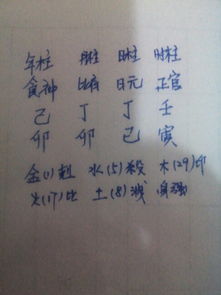 年柱 月柱 日柱 时柱
食神 比肩 日元 正官
己 丁 丁 壬
卯 卯 巳 寅
金(1)财 水(5)杀 木(29)印
火(17)比 土(8)